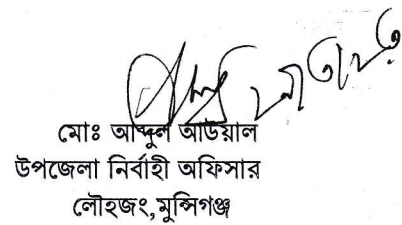 মোঃ আব্দুল আউয়াল
উপজেলা নির্বাহী অফিসার
লৌহজং,মুন্সিগঞ্জ